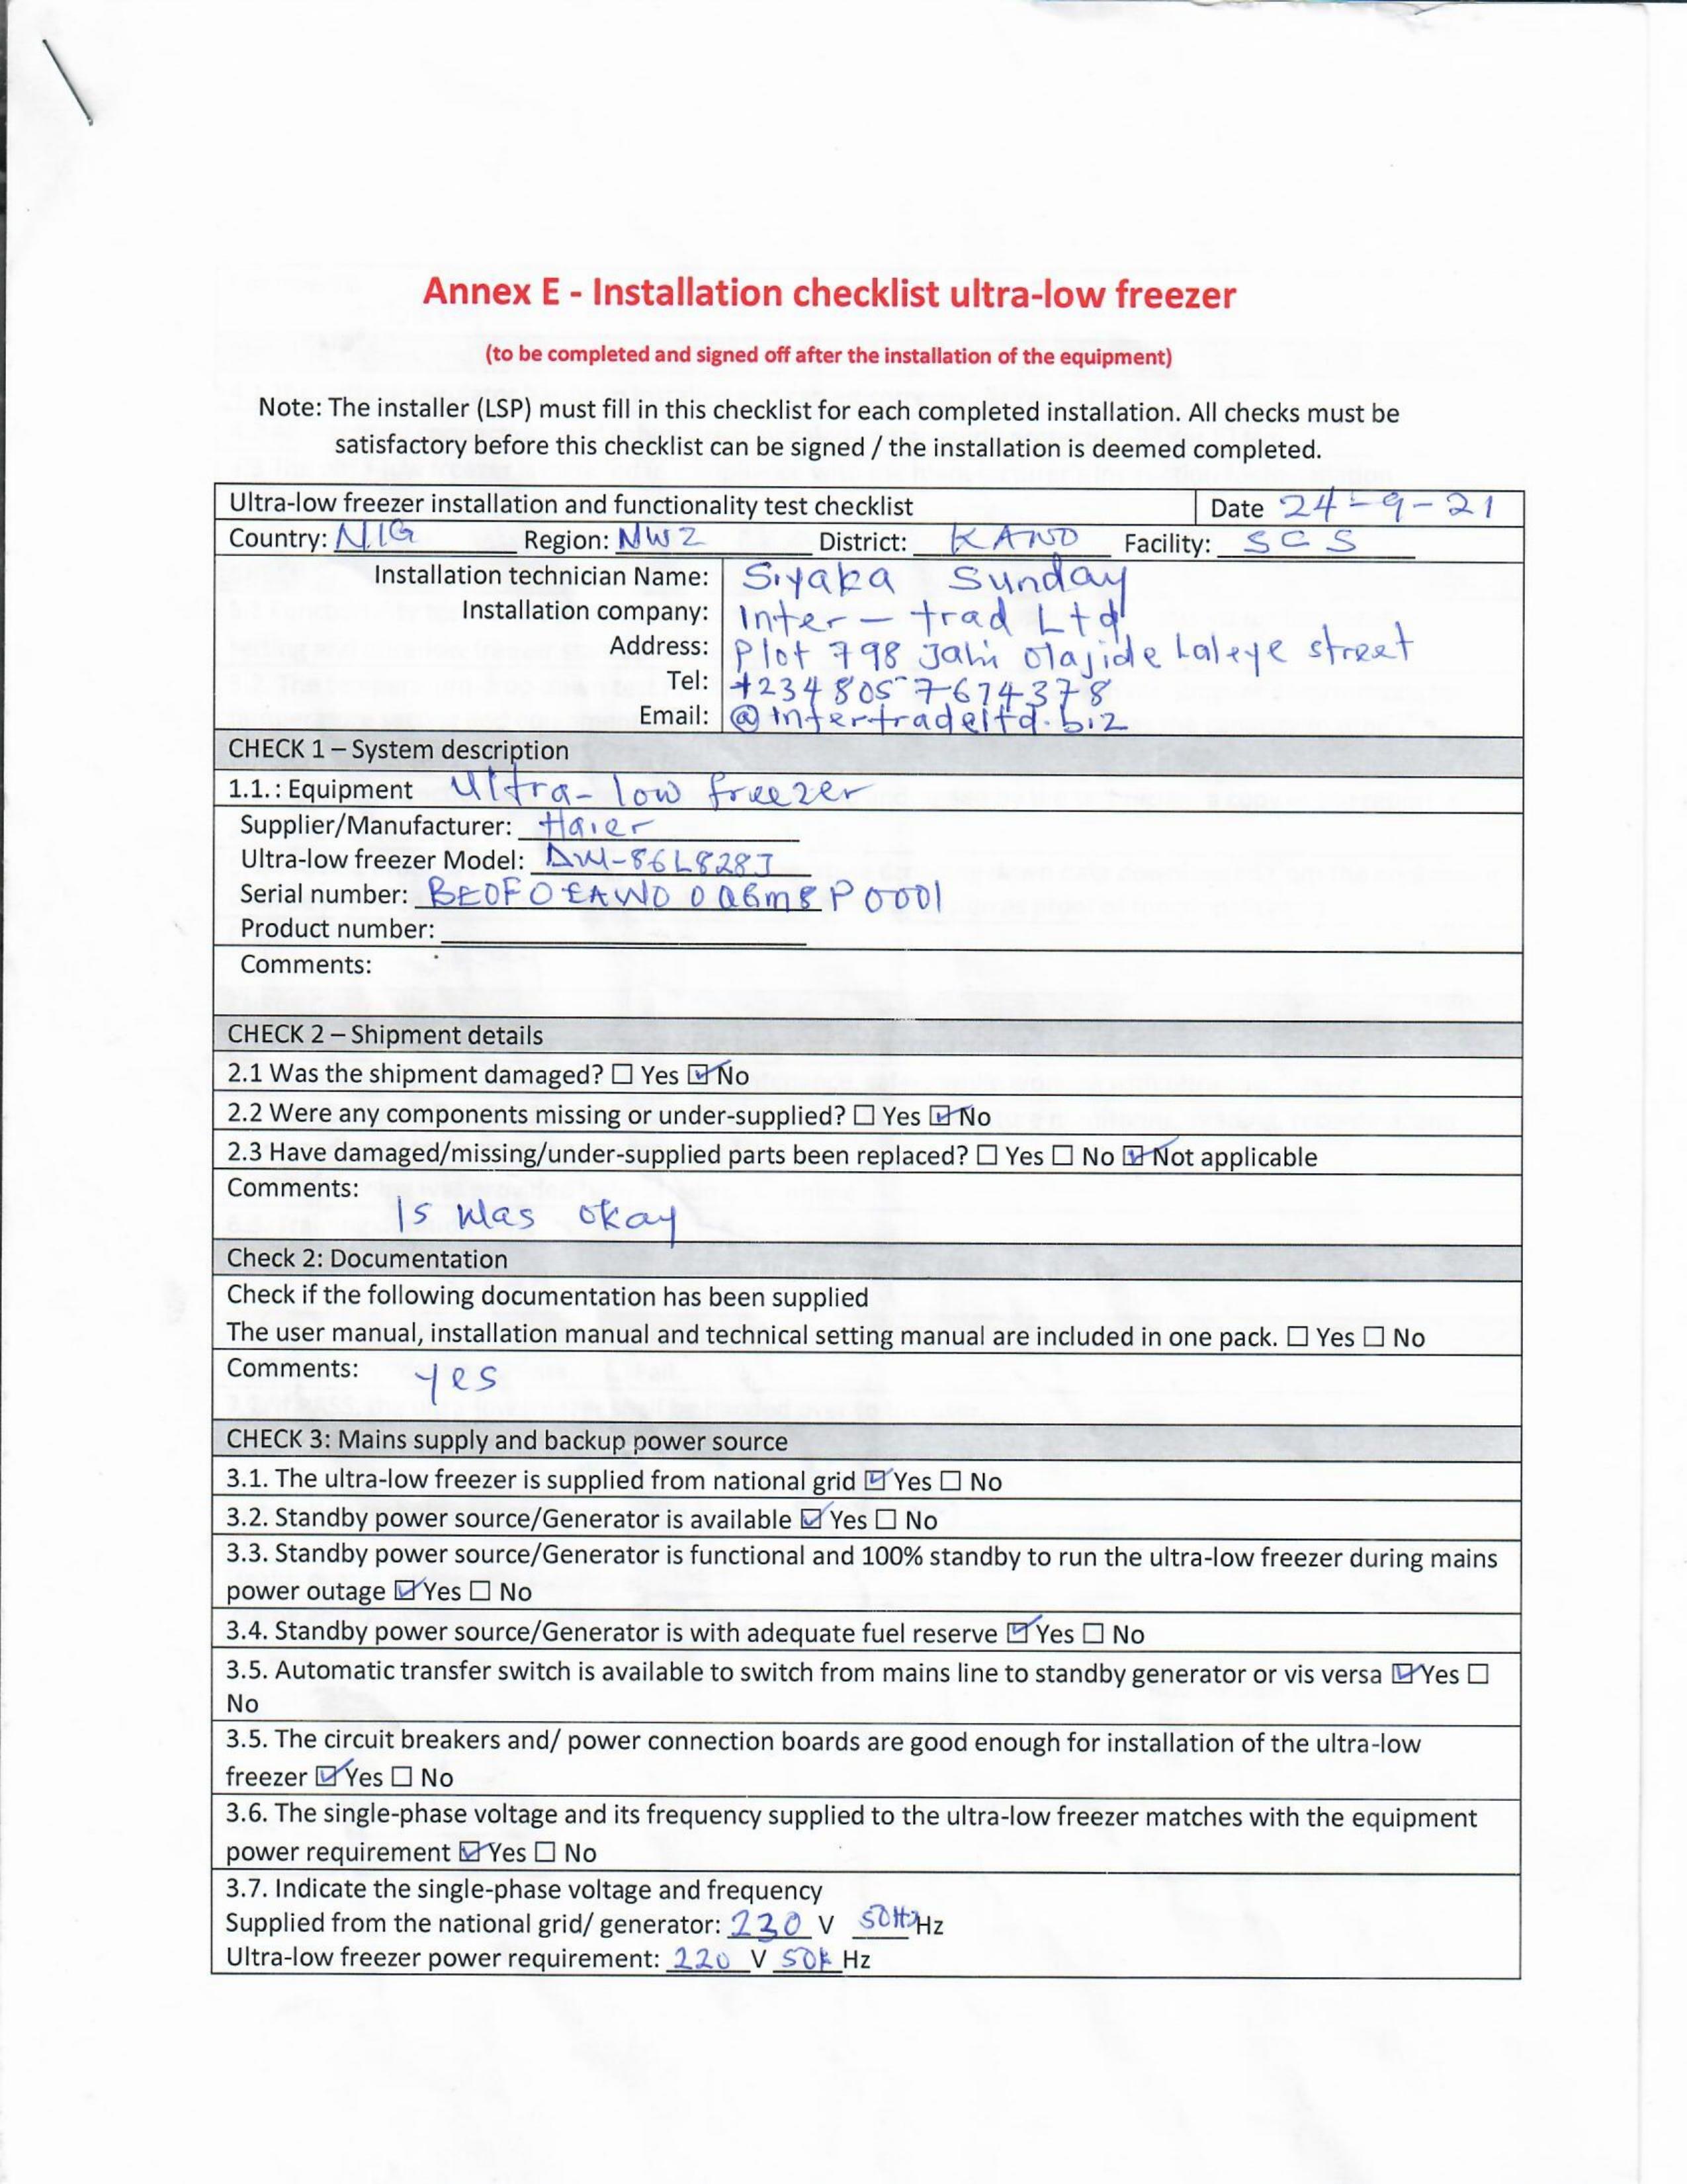 Annex E - Installation checklist ultra-low freezer
(to be completed and signed off after the installation of the equipment)
Note: The installer (LSP) must fill in this checklist for each completed installation. All checks must be
satisfactory before this checklist can be signed / the installation is deemed completed.
Ultra-low freezer installation and functionality test checklist Date 24-9-21
Country: NIG Region: NWZ District: KANO Facility: SCS
Installation technician Name: Siyaka Sunday
Installation company: Inter-trad Ltd
Address: Plot 798 Jahi Olajide Laleye street
Tel: +234 805 7674378
Email: @intertradeltd.biz
CHECK 1 – System description
1.1. : Equipment Ultra-low freezer
Supplier/Manufacturer: Haier
Ultra-low freezer Model: DW-86L828J
Serial number: BEOFOEAWD00Q6M8P0001
Product number:
Comments:
CHECK 2 – Shipment details
2.1 Was the shipment damaged? ☐ Yes ☑ No
2.2 Were any components missing or under-supplied? ☐ Yes ☑ No
2.3 Have damaged/missing/under-supplied parts been replaced? ☐ Yes ☐ No ☑ Not applicable
Comments:
Is was okay
Check 2: Documentation
Check if the following documentation has been supplied
The user manual, installation manual and technical setting manual are included in one pack. ☐ Yes ☐ No
Comments: yes
CHECK 3: Mains supply and backup power source
3.1. The ultra-low freezer is supplied from national grid ☑ Yes ☐ No
3.2. Standby power source/Generator is available ☑ Yes ☐ No
3.3. Standby power source/Generator is functional and 100% standby to run the ultra-low freezer during mains
power outage ☑ Yes ☐ No
3.4. Standby power source/Generator is with adequate fuel reserve ☑ Yes ☐ No
3.5. Automatic transfer switch is available to switch from mains line to standby generator or vis versa ☑ Yes ☐
No
3.5. The circuit breakers and/ power connection boards are good enough for installation of the ultra-low
freezer ☑ Yes ☐ No
3.6. The single-phase voltage and its frequency supplied to the ultra-low freezer matches with the equipment
power requirement ☑ Yes ☐ No
3.7. Indicate the single-phase voltage and frequency
Supplied from the national grid/ generator: 230 V 50Hz Hz
Ultra-low freezer power requirement: 220 V 50 Hz